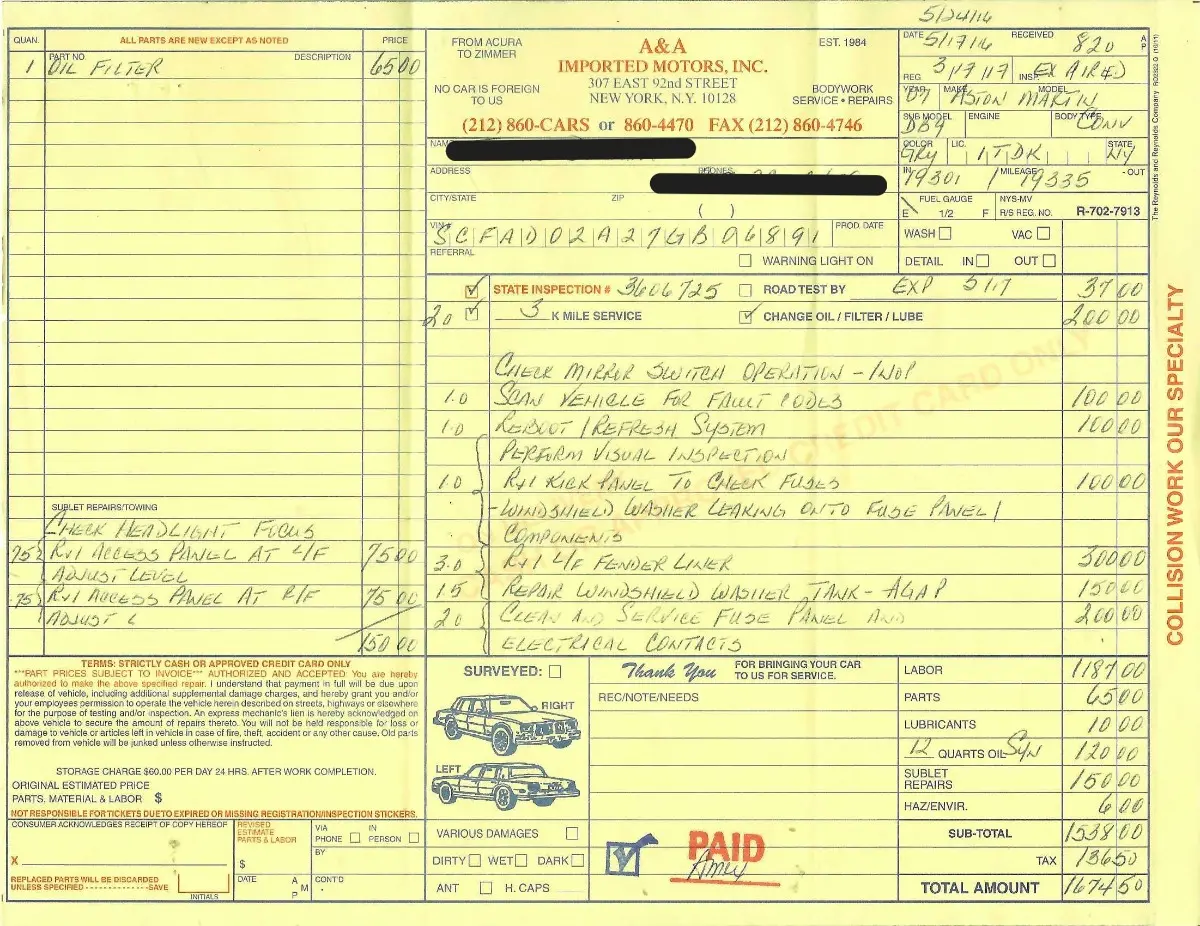 5/24/16
QUAN.
ALL PARTS ARE NEW EXCEPT AS NOTED
PRICE
PART NO
DESCRIPTION
1 OIL FILTER 65 00
SUBLET REPAIRS/TOWING
CHECK HEADLIGHT FOCUS
.75 R+I ACCESS PANEL AT L/F 75 00
ADJUST LEVEL
.75 R+I ACCESS PANEL AT R/F 75 00
ADJUST
150 00
FROM ACURA
TO ZIMMER
NO CAR IS FOREIGN
TO US
A&A
IMPORTED MOTORS, INC.
307 EAST 92nd STREET
NEW YORK, N.Y. 10128
EST. 1984
BODYWORK
SERVICE • REPAIRS
(212) 860-CARS or 860-4470 FAX (212) 860-4746
NAME
ADDRESS
PHONES
CITY/STATE
ZIP
( )
VIN# SCFAD02A27GB06891
PROD. DATE
REFERRAL
WARNING LIGHT ON
DATE 5/17/16 RECEIVED 820 A P
REG 3/17/17 INSP. EXPIRED
YEAR 07 MAKE ASTON MARTIN MODEL
SUB MODEL DB9 ENGINE BODY TYPE CONV
COLOR GRY LIC. 1TDK STATE NY
IN 19301 / MILEAGE 19335 - OUT
FUEL GAUGE
E 1/2 F
NYS-MV
R/S REG. NO.
R-702-7913
WASH VAC
DETAIL IN OUT
STATE INSPECTION # 3606725 ROAD TEST BY EXP 5/17 37 00
2.0 3 K MILE SERVICE CHANGE OIL / FILTER / LUBE 200 00
CHECK MIRROR SWITCH OPERATION - INOP
1.0 SCAN VEHICLE FOR FAULT CODES 100 00
1.0 REBOOT / REFRESH SYSTEM 100 00
PERFORM VISUAL INSPECTION
1.0 R+I KICK PANEL TO CHECK FUSES 100 00
- WINDSHIELD WASHER LEAKING ONTO FUSE PANEL /
COMPONENTS
3.0 R+I L/F FENDER LINER 300 00
1.5 REPAIR WINDSHIELD WASHER TANK - 150 00
2.0 CLEAN AND SERVICE FUSE PANEL AND 200 00
ELECTRICAL CONTACTS
COLLISION WORK OUR SPECIALTY
The Reynolds and Reynolds Company
TERMS: STRICTLY CASH OR APPROVED CREDIT CARD ONLY
***PART PRICES SUBJECT TO INVOICE*** AUTHORIZED AND ACCEPTED: You are hereby
authorized to make the above specified repair. I understand that payment in full will be due upon
release of vehicle, including additional supplemental damage charges, and hereby grant you and/or
your employees permission to operate the vehicle herein described on streets, highways or elsewhere
for the purpose of testing and/or inspection. An express mechanic's lien is hereby acknowledged on
above vehicle to secure the amount of repairs thereto. You will not be held responsible for loss or
damage to vehicle or articles left in vehicle in case of fire, theft, accident or any other cause. Old parts
removed from vehicle will be junked unless otherwise instructed.
STORAGE CHARGE $60.00 PER DAY 24 HRS. AFTER WORK COMPLETION.
ORIGINAL ESTIMATED PRICE
PARTS. MATERIAL & LABOR $
NOT RESPONSIBLE FOR TICKETS DUE TO EXPIRED OR MISSING REGISTRATION/INSPECTION STICKERS.
CONSUMER ACKNOWLEDGES RECEIPT OF COPY HEREOF
X
REPLACED PARTS WILL BE DISCARDED
UNLESS SPECIFIED - - - - - - - - - - - - - - -SAVE
INITIALS
REVISED
ESTIMATE
PARTS & LABOR
$
DATE A M P
VIA
PHONE
IN
PERSON
BY
CONT'D
SURVEYED:
RIGHT
LEFT
VARIOUS DAMAGES
DIRTY WET DARK
ANT H. CAPS
Thank You
FOR BRINGING YOUR CAR
TO US FOR SERVICE.
REC/NOTE/NEEDS
PAID
LABOR 1187 00
PARTS 65 00
LUBRICANTS 10 00
12 QUARTS OIL SYN 120 00
SUBLET
REPAIRS 150 00
HAZ/ENVIR. 6 00
SUB-TOTAL 1538 00
TAX 136 50
TOTAL AMOUNT 1674 50